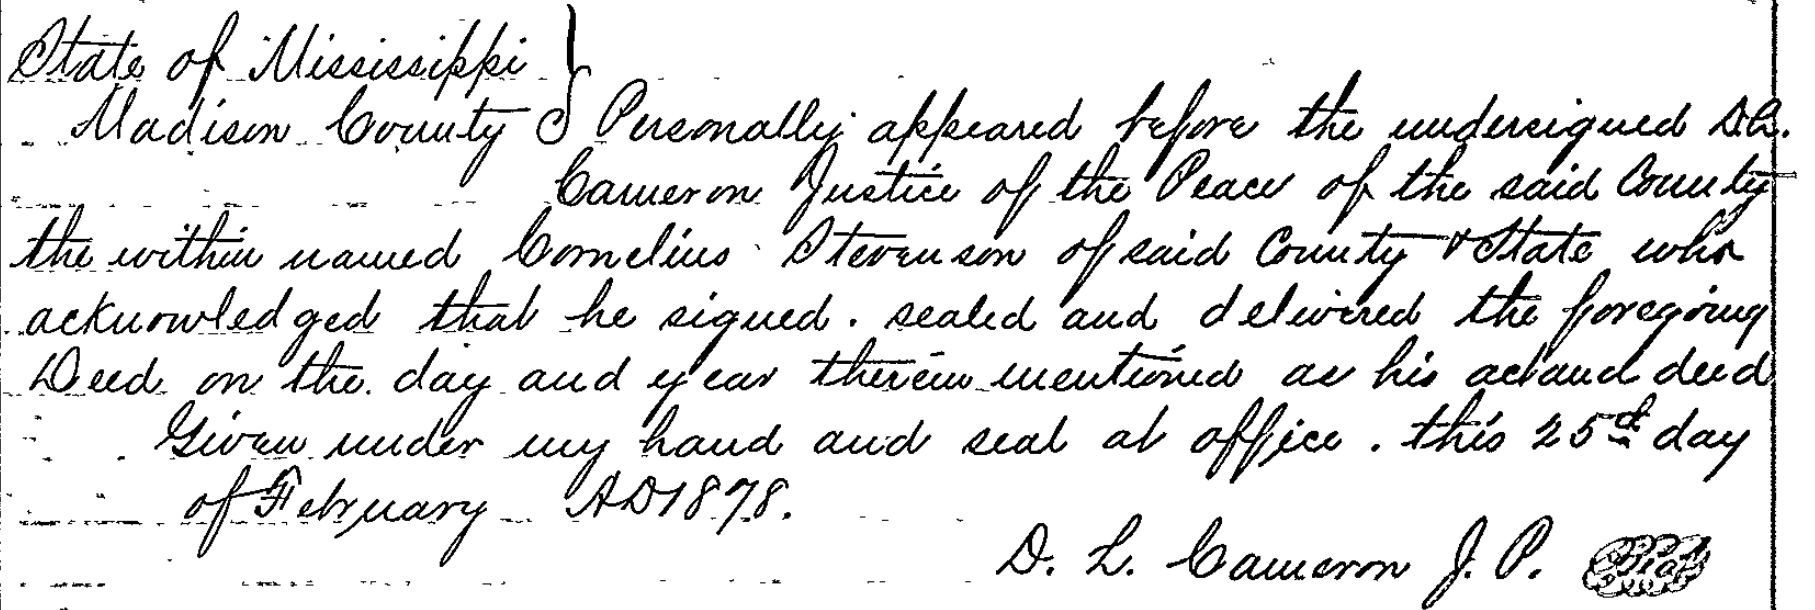 State of Mississippi }
Madison County } Personally appeared before the undersigned D.L.
Cameron Justice of the Peace of the said County
the within named Cornelius Stevenson of said County & State who
acknowledged that he signed. sealed and delivered the foregoing
Deed on the day and year therein mentioned as his act and deed
Given under my hand and seal at office. this 25th day
of February AD 1878.
D. L. Cameron J. P. Seal